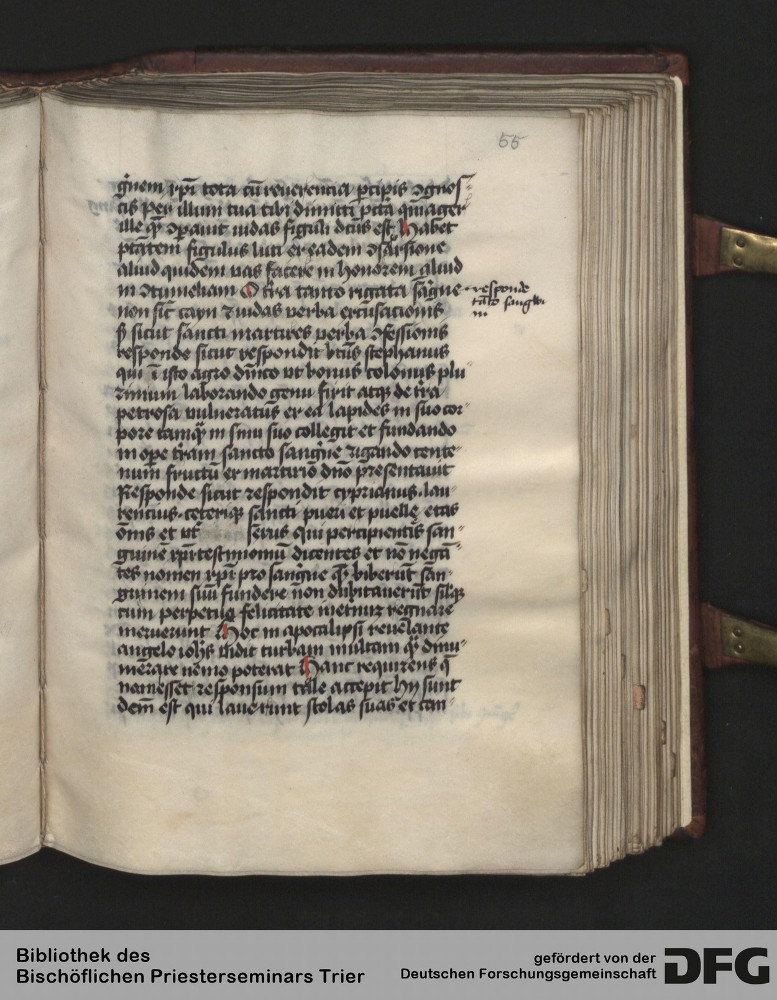 55
gͥnem xp̄i tota cū reuerencia ꝑcipis ꝯgnos⸗
cis per illum tua tibi dimitti pctā qm̄ ager
ille qͥ ꝯparauit iudas figuli dictus est Habet
ptātem figulus luti ex eadem ꝯsparsione
aliud quidem uas facere in honorem aliud
in ꝯtumeliam O t̄ra tanto rigata sāgͥne
responde
tāto sangwi
ni
non sic cayn ⁊ iudas verba excusacionis
ß sicut sancti martires verba ꝯfessionis
responde sicut respondit btūs stephanus
qui ī isto agro dn̄ico vt bonus colonus plu⸗
rimum laborando genu fixit atqꝫ de t̄ra
petrosa vulneratus ex ea lapides in suo cor⸗
pore tamqͣ in sinu suo collegit et fundando
in ope t̄ram sancto sangͥne rigando cente⸗
num fructū ex martirio dn̄o presentauit
Responde sicut respondit cyprianus lau⸗
rencius ceteriqꝫ sancti pueri et puelle etas
om̄is et
serus qui percipientis san⸗
guinē xp̄i testimoniū dicentes et nō negā⸗
tes nomen xp̄i pro sangͥne qͥ biberūt san⸗
guinem suū fundere non dubitauerūt
cum perpetua felicitate in etnuꝫ regnare
meruerunt Hoc in apocalipsi reuelante
angelo ioh̄s vidit turbam multam qͣ dinu⸗
merare nemo poterat Hanc requirens q̄
nam esset responsum tale accepit Hij sunt
dem̄ est qui lauerunt stolas suas et can⸗
Bibliothek des
Bischöflichen Priesterseminars Trier
gefördert von der
Deutschen Forschungsgemeinschaft
DFG